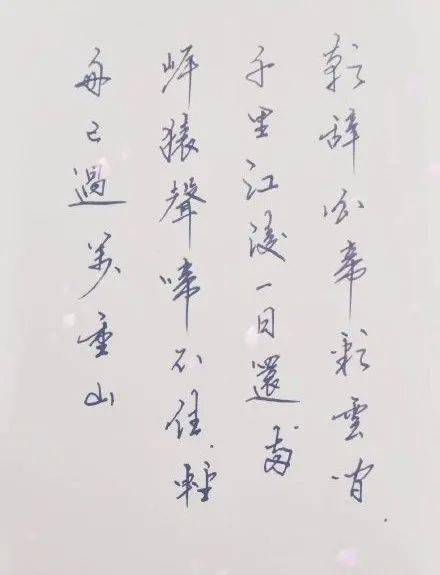 朝辞白帝彩雲間
千里江陵一日還兩
岸猿聲啼不住輕
舟已過萬重山